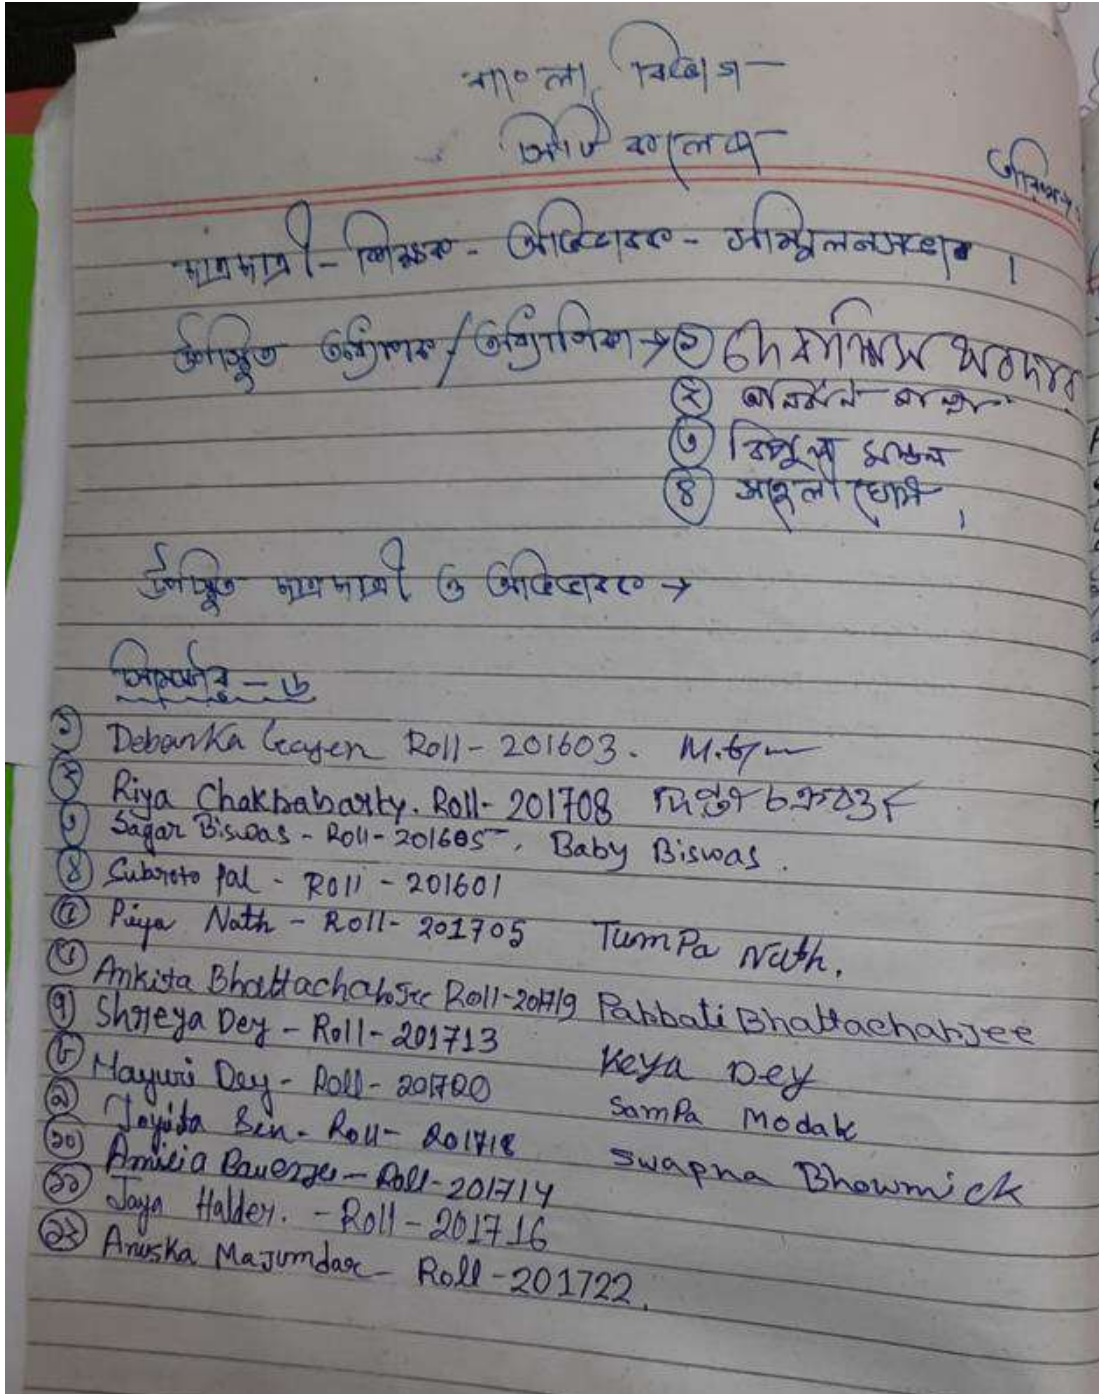 বাংলা বিভাগ
সিটি কলেজ
তারিখ-
ছাত্রছাত্রী - শিক্ষক - অভিভাবক - সম্মিলনসভার ।
উপস্থিত অধ্যাপক / অধ্যাপিকা → ① দেবাশিস সরদার
②
③ বিপুল মণ্ডল
④ ঘোষ ।
উপস্থিত ছাত্রছাত্রী ও অভিভাবক →
সেমেস্টার - ৬
① Debanka Gayen Roll - 201603.
② Riya Chakrabarty. Roll - 201708 চক্রবর্তী
③ Sagar Biswas - Roll - 201605 . Baby Biswas.
④ Subroto Pal - Roll - 201601
⑤ Piya Nath - Roll - 201705 Tumpa Nath.
⑥ Ankita Bhattacharjee Roll - 201719 Parbati Bhattacharjee
⑦ Shreya Dey - Roll - 201713 Keya Dey
⑧ Mayuri Dey - Roll - 201720 Sampa Modak
⑨ Joyita Sen - Roll - 201718 Swapna Bhowmick
⑩ Banerjee - Roll - 201714
⑪ Jaya Halder. - Roll - 201716
⑫ Anuska Majumdar - Roll - 201722.